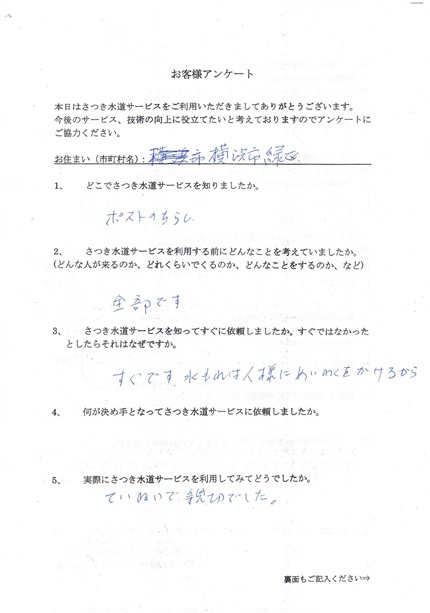 お客様アンケート
本日はさつき水道サービスをご利用いただきましてありがとうございます。
今後のサービス、技術の向上に役立てたいと考えておりますのでアンケートに
ご協力ください。
お住まい（市町村名）： 横浜市緑区
1、 どこでさつき水道サービスを知りましたか。
ポストのちらし
2、 さつき水道サービスを利用する前にどんなことを考えていましたか。
（どんな人が来るのか、どれくらいでくるのか、どんなことをするのか、など）
全部です
3、 さつき水道サービスを知ってすぐに依頼しましたか。すぐではなかった
としたらそれはなぜですか。
すぐです、水もれは人様にめいわくをかけるから
4、 何が決め手となってさつき水道サービスに依頼しましたか。
5、 実際にさつき水道サービスを利用してみてどうでしたか。
ていねいで親切でした。
裏面もご記入ください⇒